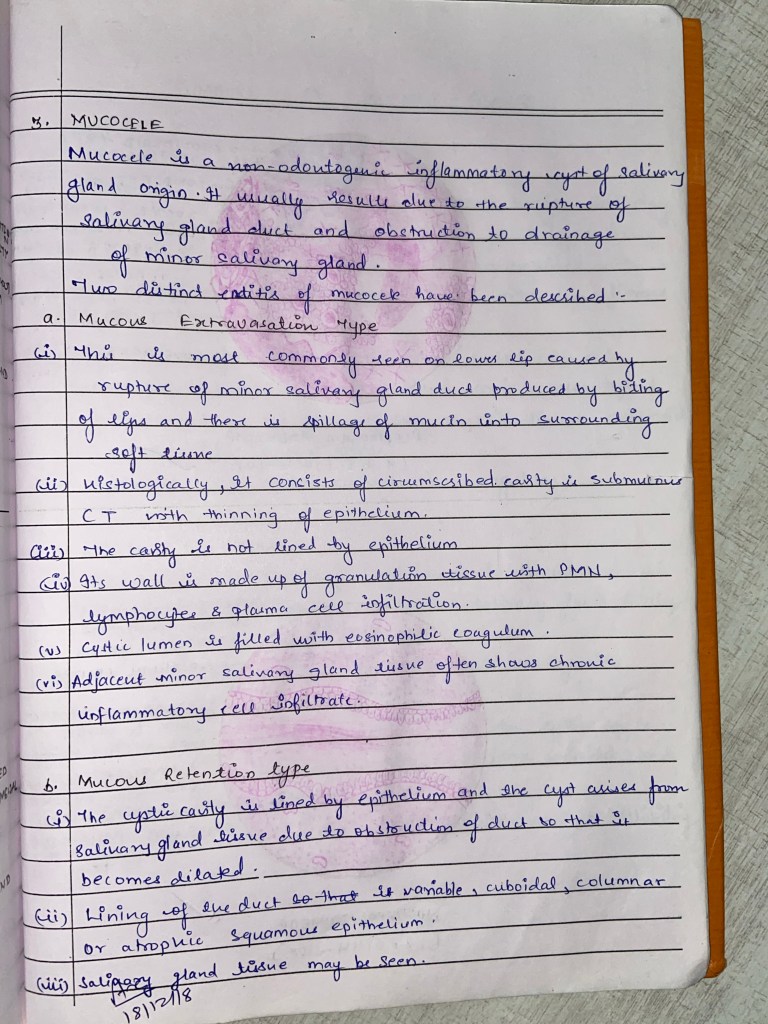 3. MUCOCELE
Mucocele is a non-odontogenic inflammatory cyst of salivary
gland origin. It usually results due to the rupture of
salivary gland duct and obstruction to drainage
of minor salivary gland.
Two distinct entitis of mucocele have been described :-
a. Mucous Extravasation Type
(i) This is most commonly seen on lower lip caused by
rupture of minor salivary gland duct produced by biting
of lips and there is spillage of mucin into surrounding
soft tissue
(ii) Histologically, it concists of circumscribed cavity is submucous
CT with thinning of epithelium.
(iii) The cavity is not lined by epithelium
(iv) Its wall is made up of granulation tissue with PMN,
lymphocytes & plasma cell infiltration.
(v) Cystic lumen is filled with eosinophilic coagulum.
(vi) Adjacent minor salivary gland tissue often shows chronic
inflammatory cell infiltrate.
b. Mucous Retention type
(i) The cystic cavity is lined by epithelium and the cyst arises from
salivary gland tissue due to obstruction of duct so that it
becomes dilated.
(ii) Lining of the duct so that is variable, cuboidal, columnar
or atrophic squamous epithelium.
(iii) Salivary gland tissue may be seen.
18/12/18